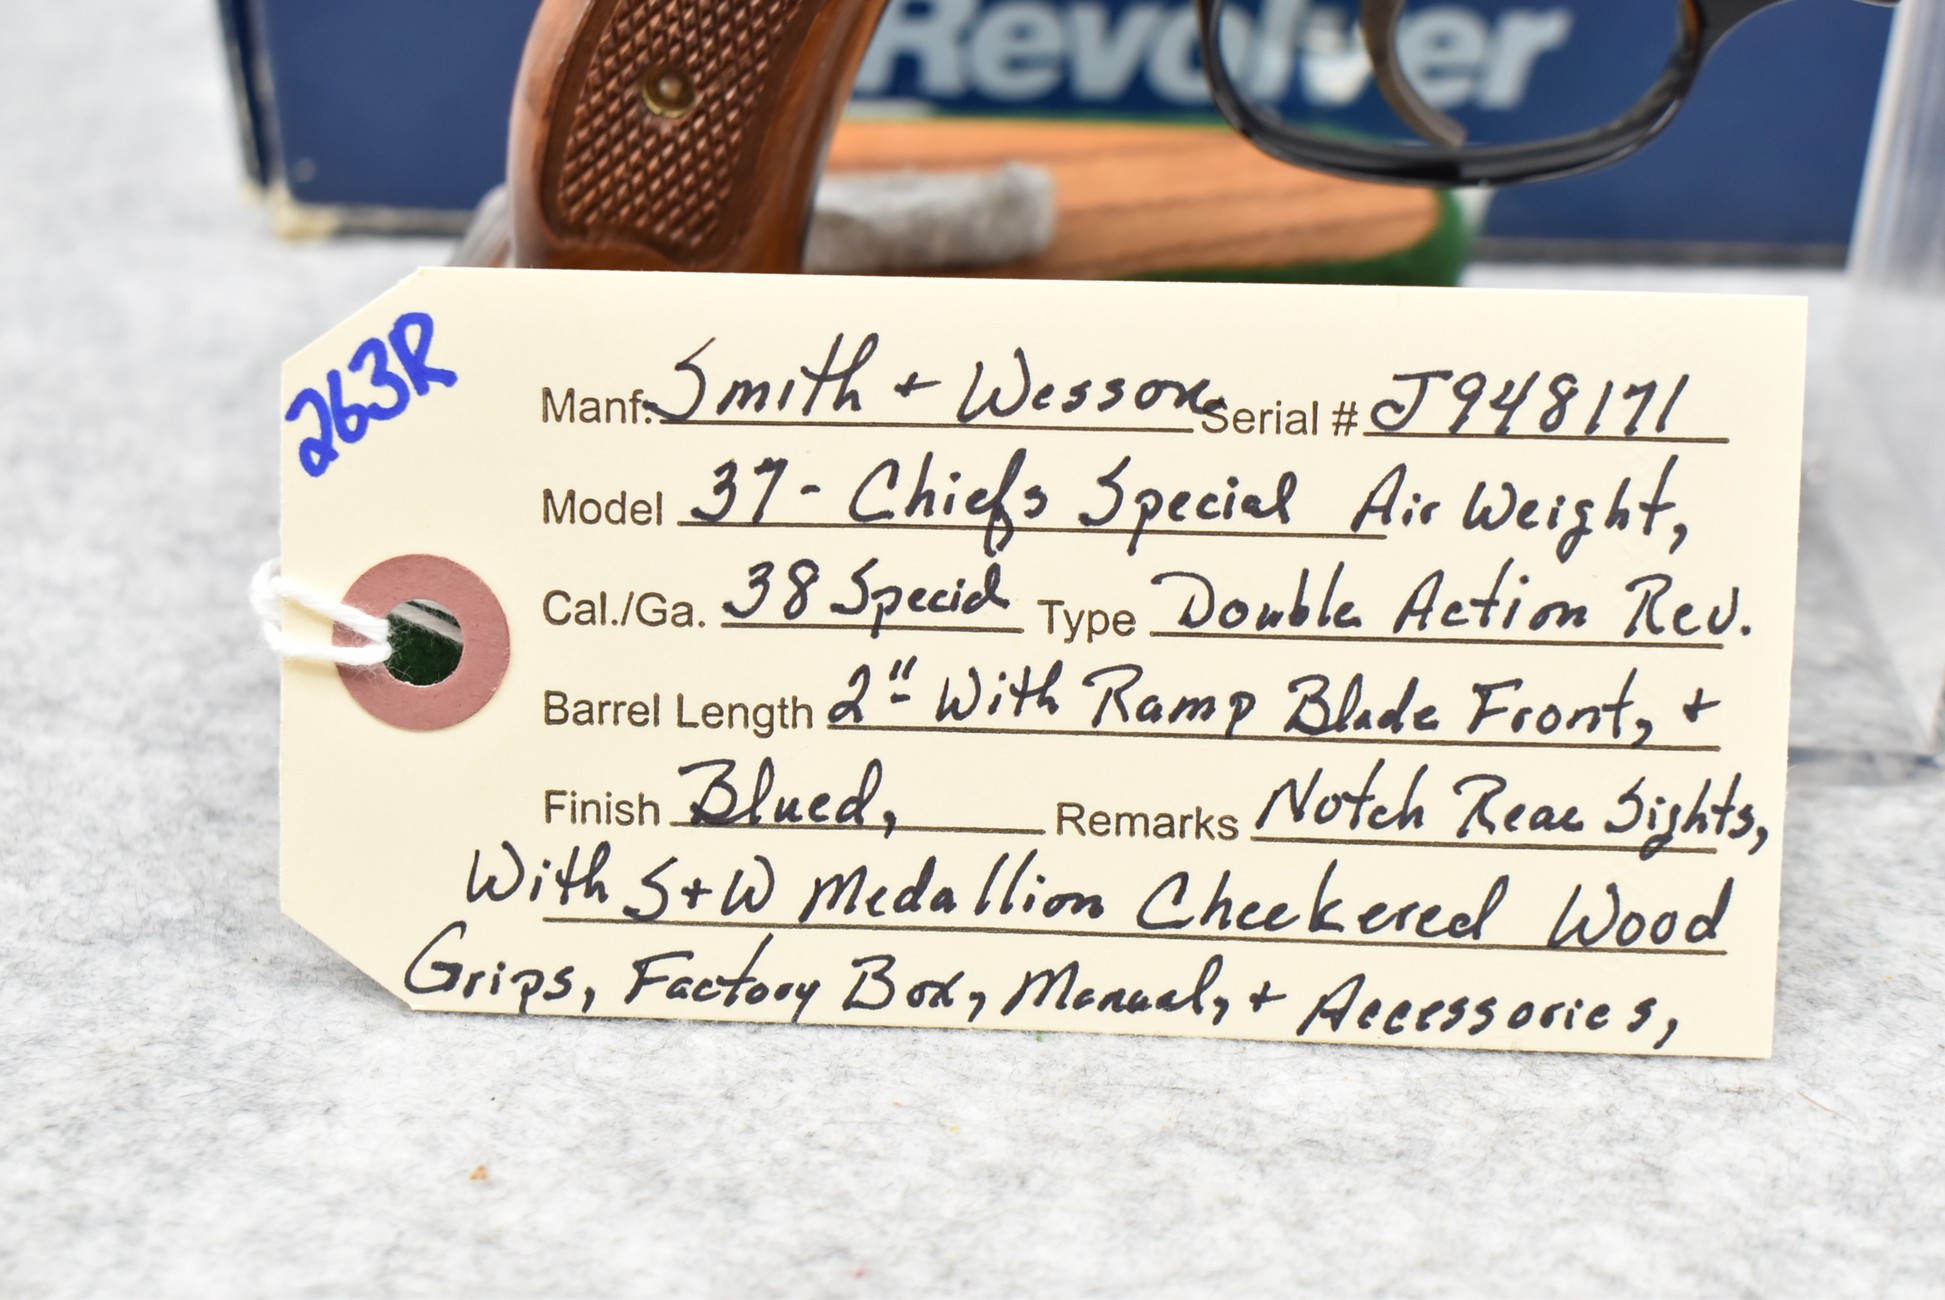 Revolver
263R
Manf. Smith + Wesson, Serial # J948171
Model 37 - Chiefs Special Air Weight,
Cal./Ga. 38 Special Type Double Action Rev.
Barrel Length 2" With Ramp Blade Front, +
Finish Blued, Remarks Notch Rear Sights,
With S+W Medallion Checkered Wood
Grips, Factory Box, Manual, + Accessories,